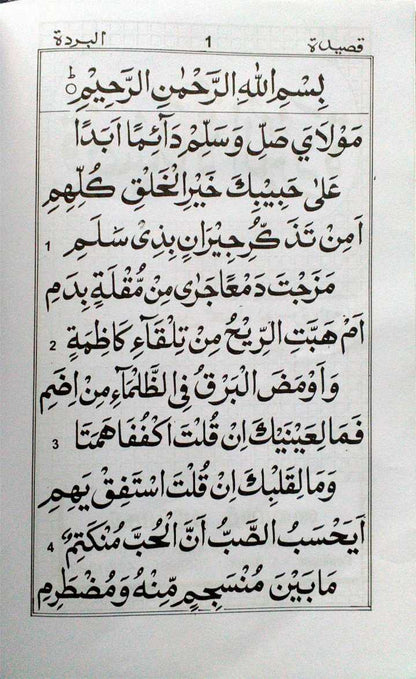 قصيدة 1 البردة
بِسْمِ اللهِ الرَّحْمٰنِ الرَّحِيْمِ ط
مَوْلَايَ صَلِّ وَسَلِّمْ دَآئِمًا اَبَدًا
عَلىٰ حَبِيْبِكَ خَيْرِ الْخَلْقِ كُلِّهِمِ
اَمِنْ تَذَكُّرِ جِيْرَانٍ بِذِيْ سَلَمِ 1
مَزَجْتَ دَمْعًا جَرٰى مِنْ مُّقْلَةٍ بِدَمِ
اَمْ هَبَّتِ الرِّيْحُ مِنْ تِلْقَآءِ كَاظِمَةٍ 2
وَاَوْمَضَ الْبَرْقُ فِي الظَّلْمَآءِ مِنْ اِضَمِ
فَمَا لِعَيْنَيْكَ اِنْ قُلْتَ اكْفُفَا هَمَتَا 3
وَمَا لِقَلْبِكَ اِنْ قُلْتَ اسْتَفِقْ يَهِمِ
اَيَحْسَبُ الصَّبُّ اَنَّ الْحُبَّ مُنْكَتِمٌ 4
مَا بَيْنَ مُنْسَجِمٍ مِّنْهُ وَمُضْطَرِمِ